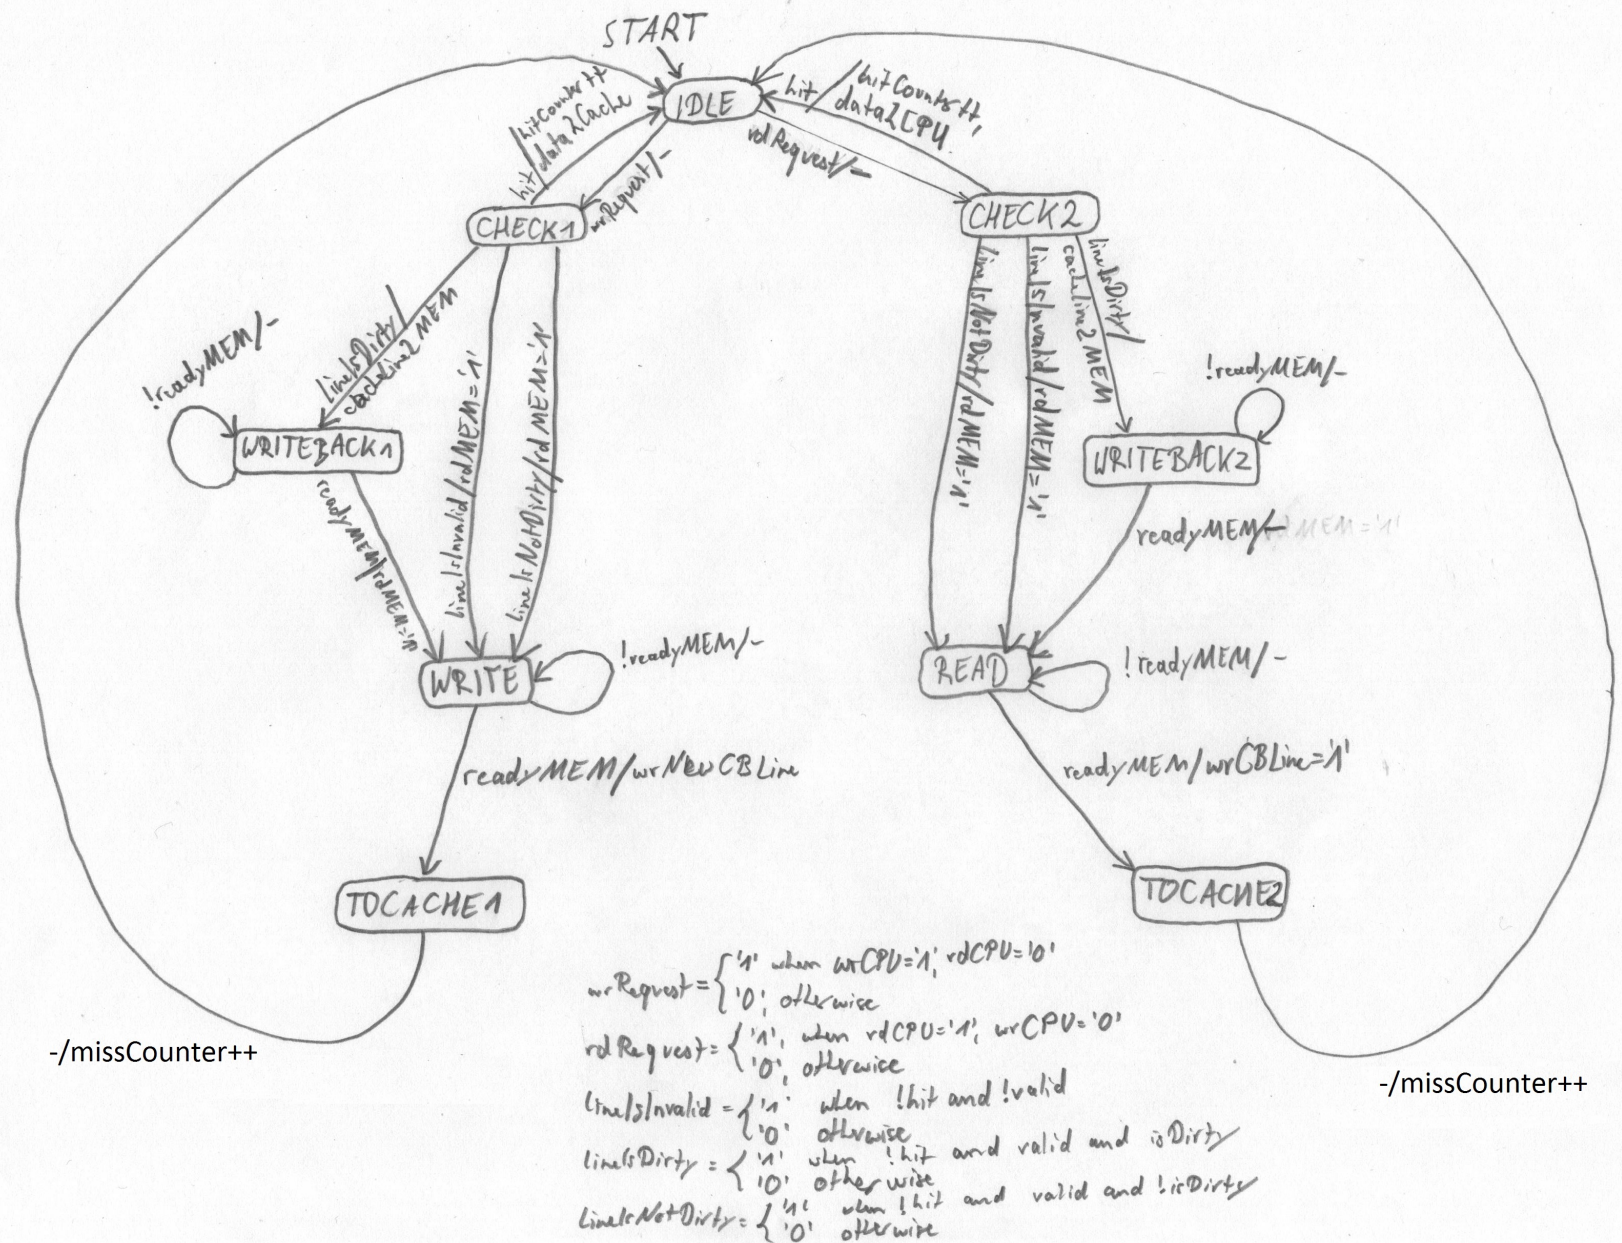 START
IDLE
hit/hitCounter++
data2Cache
wrRequest/-
hit/hitCounter++,
data2CPU
rdRequest/-
CHECK1
CHECK2
lineIsDirty/
cacheline2MEM
lineIsInvalid/rdMEM='1'
lineIsNotDirty/rdMEM='1'
lineIsNotDirty/rdMEM='1'
lineIsInvalid/rdMEM='1'
lineIsDirty/
cacheline2MEM
!readyMEM/-
WRITEBACK1
!readyMEM/-
WRITEBACK2
readyMEM/rdMEM='1'
readyMEM/-
MEM='1'
WRITE
!readyMEM/-
READ
!readyMEM/-
readyMEM/wrNewCBLine
readyMEM/wrCBLine='1'
TOCACHE1
TOCACHE2
-/missCounter++
-/missCounter++
wrRequest = { '1' when wrCPU='1', rdCPU='0'
'0', otherwise
rdRequest = { '1', when rdCPU='1', wrCPU='0'
'0', otherwise
lineIsInvalid = { '1' when !hit and !valid
'0' otherwise
lineIsDirty = { '1' when !hit and valid and isDirty
'0' otherwise
lineIsNotDirty = { '1' when !hit and valid and !isDirty
'0' otherwise